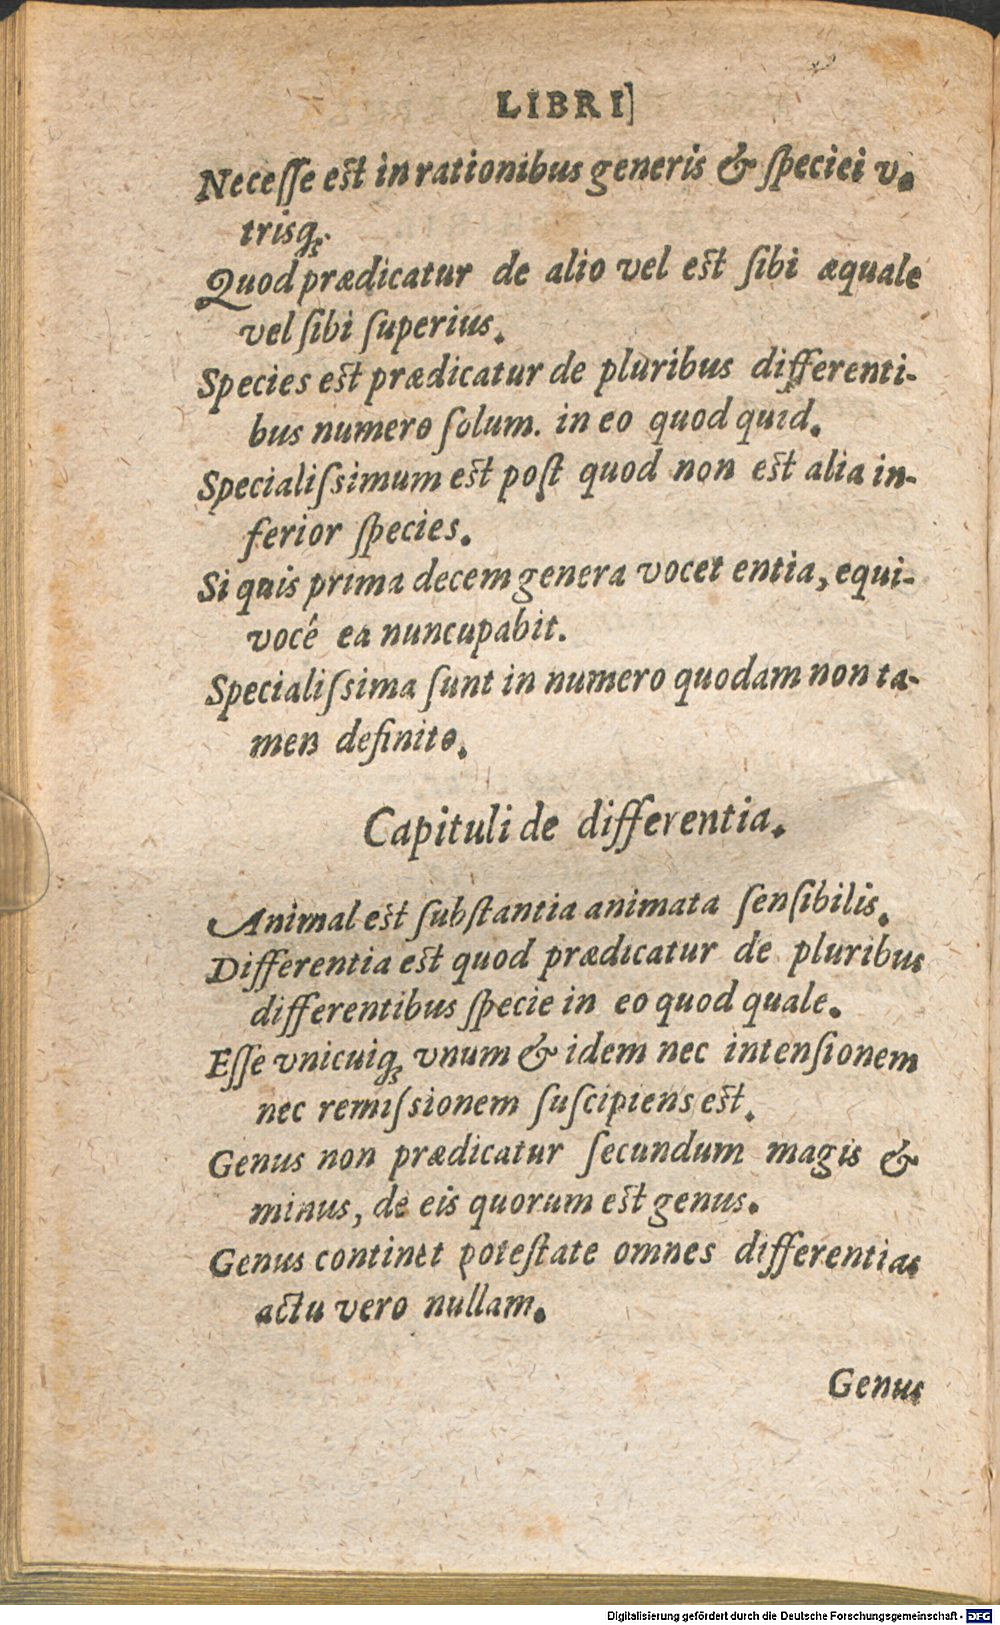 LIBRI]
Neceſſe eſt in rationibus generis & ſpeciei v-
trisq;.
Quod prædicatur de alio vel eſt ſibi æquale
vel ſibi ſuperius.
Species eſt prædicatur de pluribus differenti-
bus numero ſolum. in eo quod quid.
Specialiſsimum eſt poſt quod non eſt alia in-
ferior ſpecies.
Si quis prima decem genera vocet entia, equi-
vocé ea nuncupabit.
Specialiſsima ſunt in numero quodam non ta-
men definito.
Capituli de differentia.
Animal eſt ſubſtantia animata ſenſibilis.
Differentia eſt quod prædicatur de pluribus
differentibus ſpecie in eo quod quale.
Eſſe vnicuiq; vnum & idem nec intenſionem
nec remiſsionem ſuſcipiens eſt.
Genus non prædicatur ſecundum magis &
minus, de eis quorum eſt genus.
Genus continet poteſtate omnes differentias
actu vero nullam.
Genus
Digitalisierung gefördert durch die Deutsche Forschungsgemeinschaft - DFG